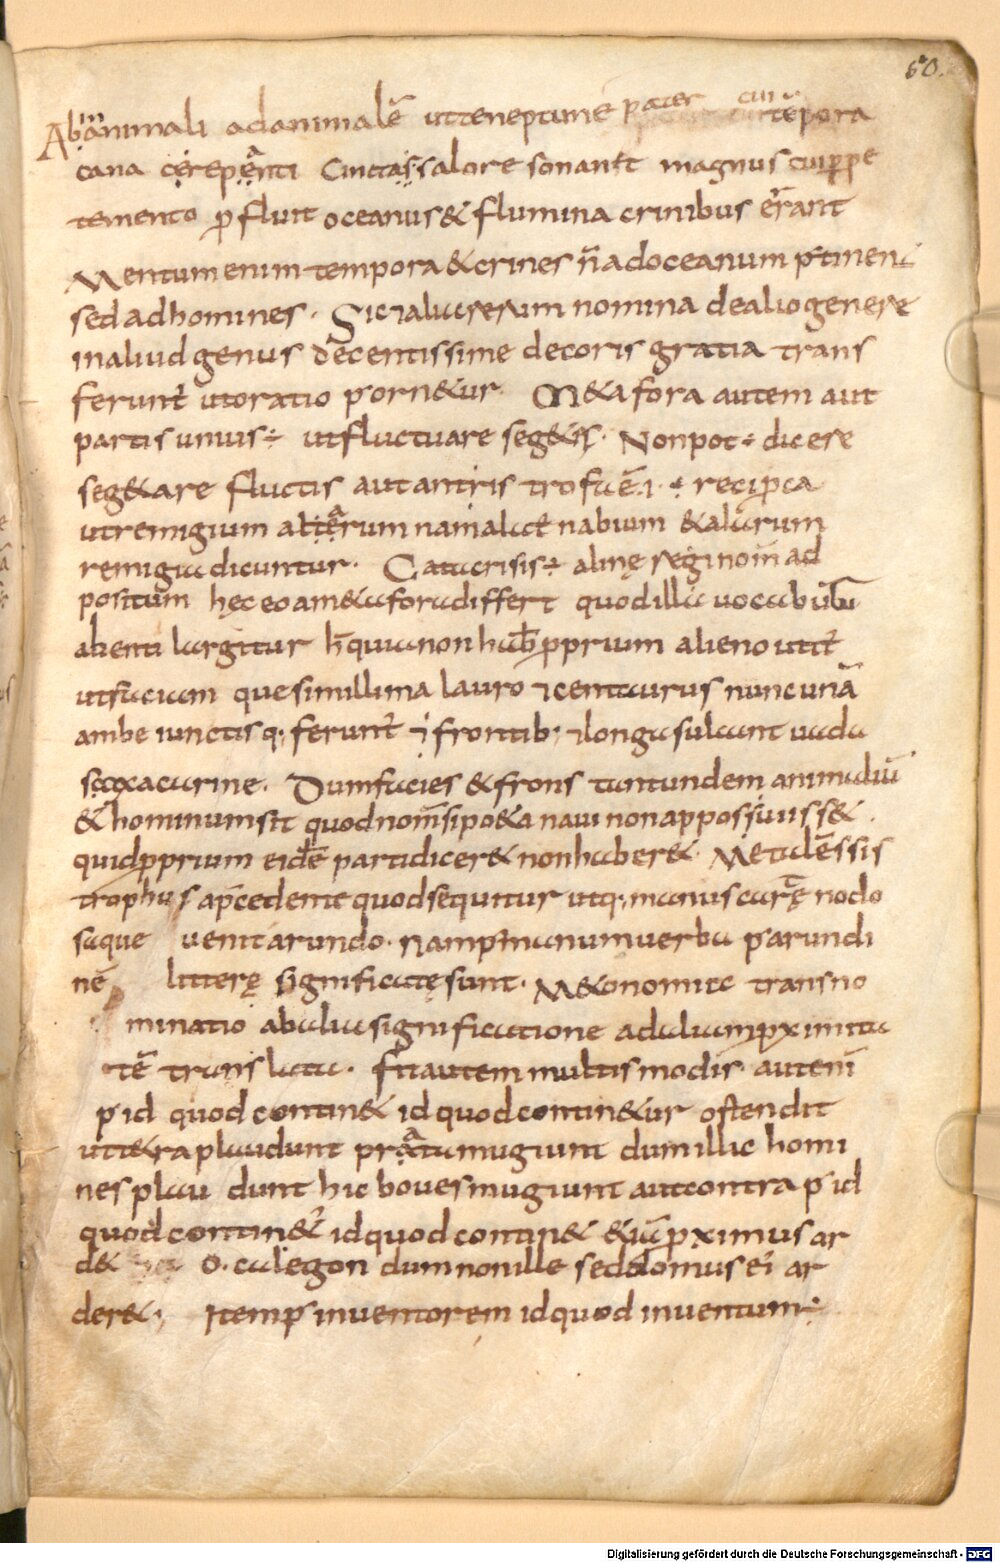 60.
Ab animali ad animalē ut te neptune pater cui tēpora
cana cerepanti Cincta ssalore sonant magnus cui ꝑpe
temento ꝓfluit oceanus & flumina crinibus errant
Mentum enim tempora & crines n̄ ad oceanum ꝑtinent
sed ad homines. Sic ⁊ aliae rerum nomina de alio genere
in aliud genus decentissime decoris gratia trans
ferunt̄ ut oratio ꝑorn&ur. M&afora autem aut
partis unius ÷ ut fluctuare seg&es. Non pot ÷ dicere
seg&are fluctis aut antris trofuē .i. ÷ reciproca
ut remigium alarum nam alae & nabium & alarum
remigia dicuntur. Catacrisis ÷ alienę rei nom̄ ad
positum hęc eo a m&afora differt quod illa uocabulū
abenti largitur h̄ quia non hab& ꝓprium alieno utit̄
ut faciam que simillima lauro ⁊ centaurus nunc unā
ambe iunctisq; ferunt̄ ⁊ frontib; ⁊ longa sulcant uada
carine. Dum facies & frons tantundem animaliū
& hominum sit quod nom̄ si po&a naui non apposuiss&.
quid ꝓprium eidē parti dicer& non haber&. Metalēssis
trophus a p̄cedente quod sequitur utq; manus carę nodo
saque uenit arundo. Nam ꝑ manum uerba ꝑ arundi
nē litterę significatę sunt. M&onomiae transno
minatio ab alia significatione ad aliam ꝓximita
tē translata. fit autem multis modis aut enī
ꝑ id quod contin& id quod contin&ur ostendit
ut t&ra plaudunt prata mugiunt dum illic homi
nes plau dunt hic boues mugiunt aut contra ꝑ id
quod contin&̄ id quod contin& & iā ꝓximus ar
d& o. calegon dum non ille sed domus ei ar
der&. Item ꝑ inventorem id quod inventum ÷
Digitalisierung gefördert durch die Deutsche Forschungsgemeinschaft - DFG